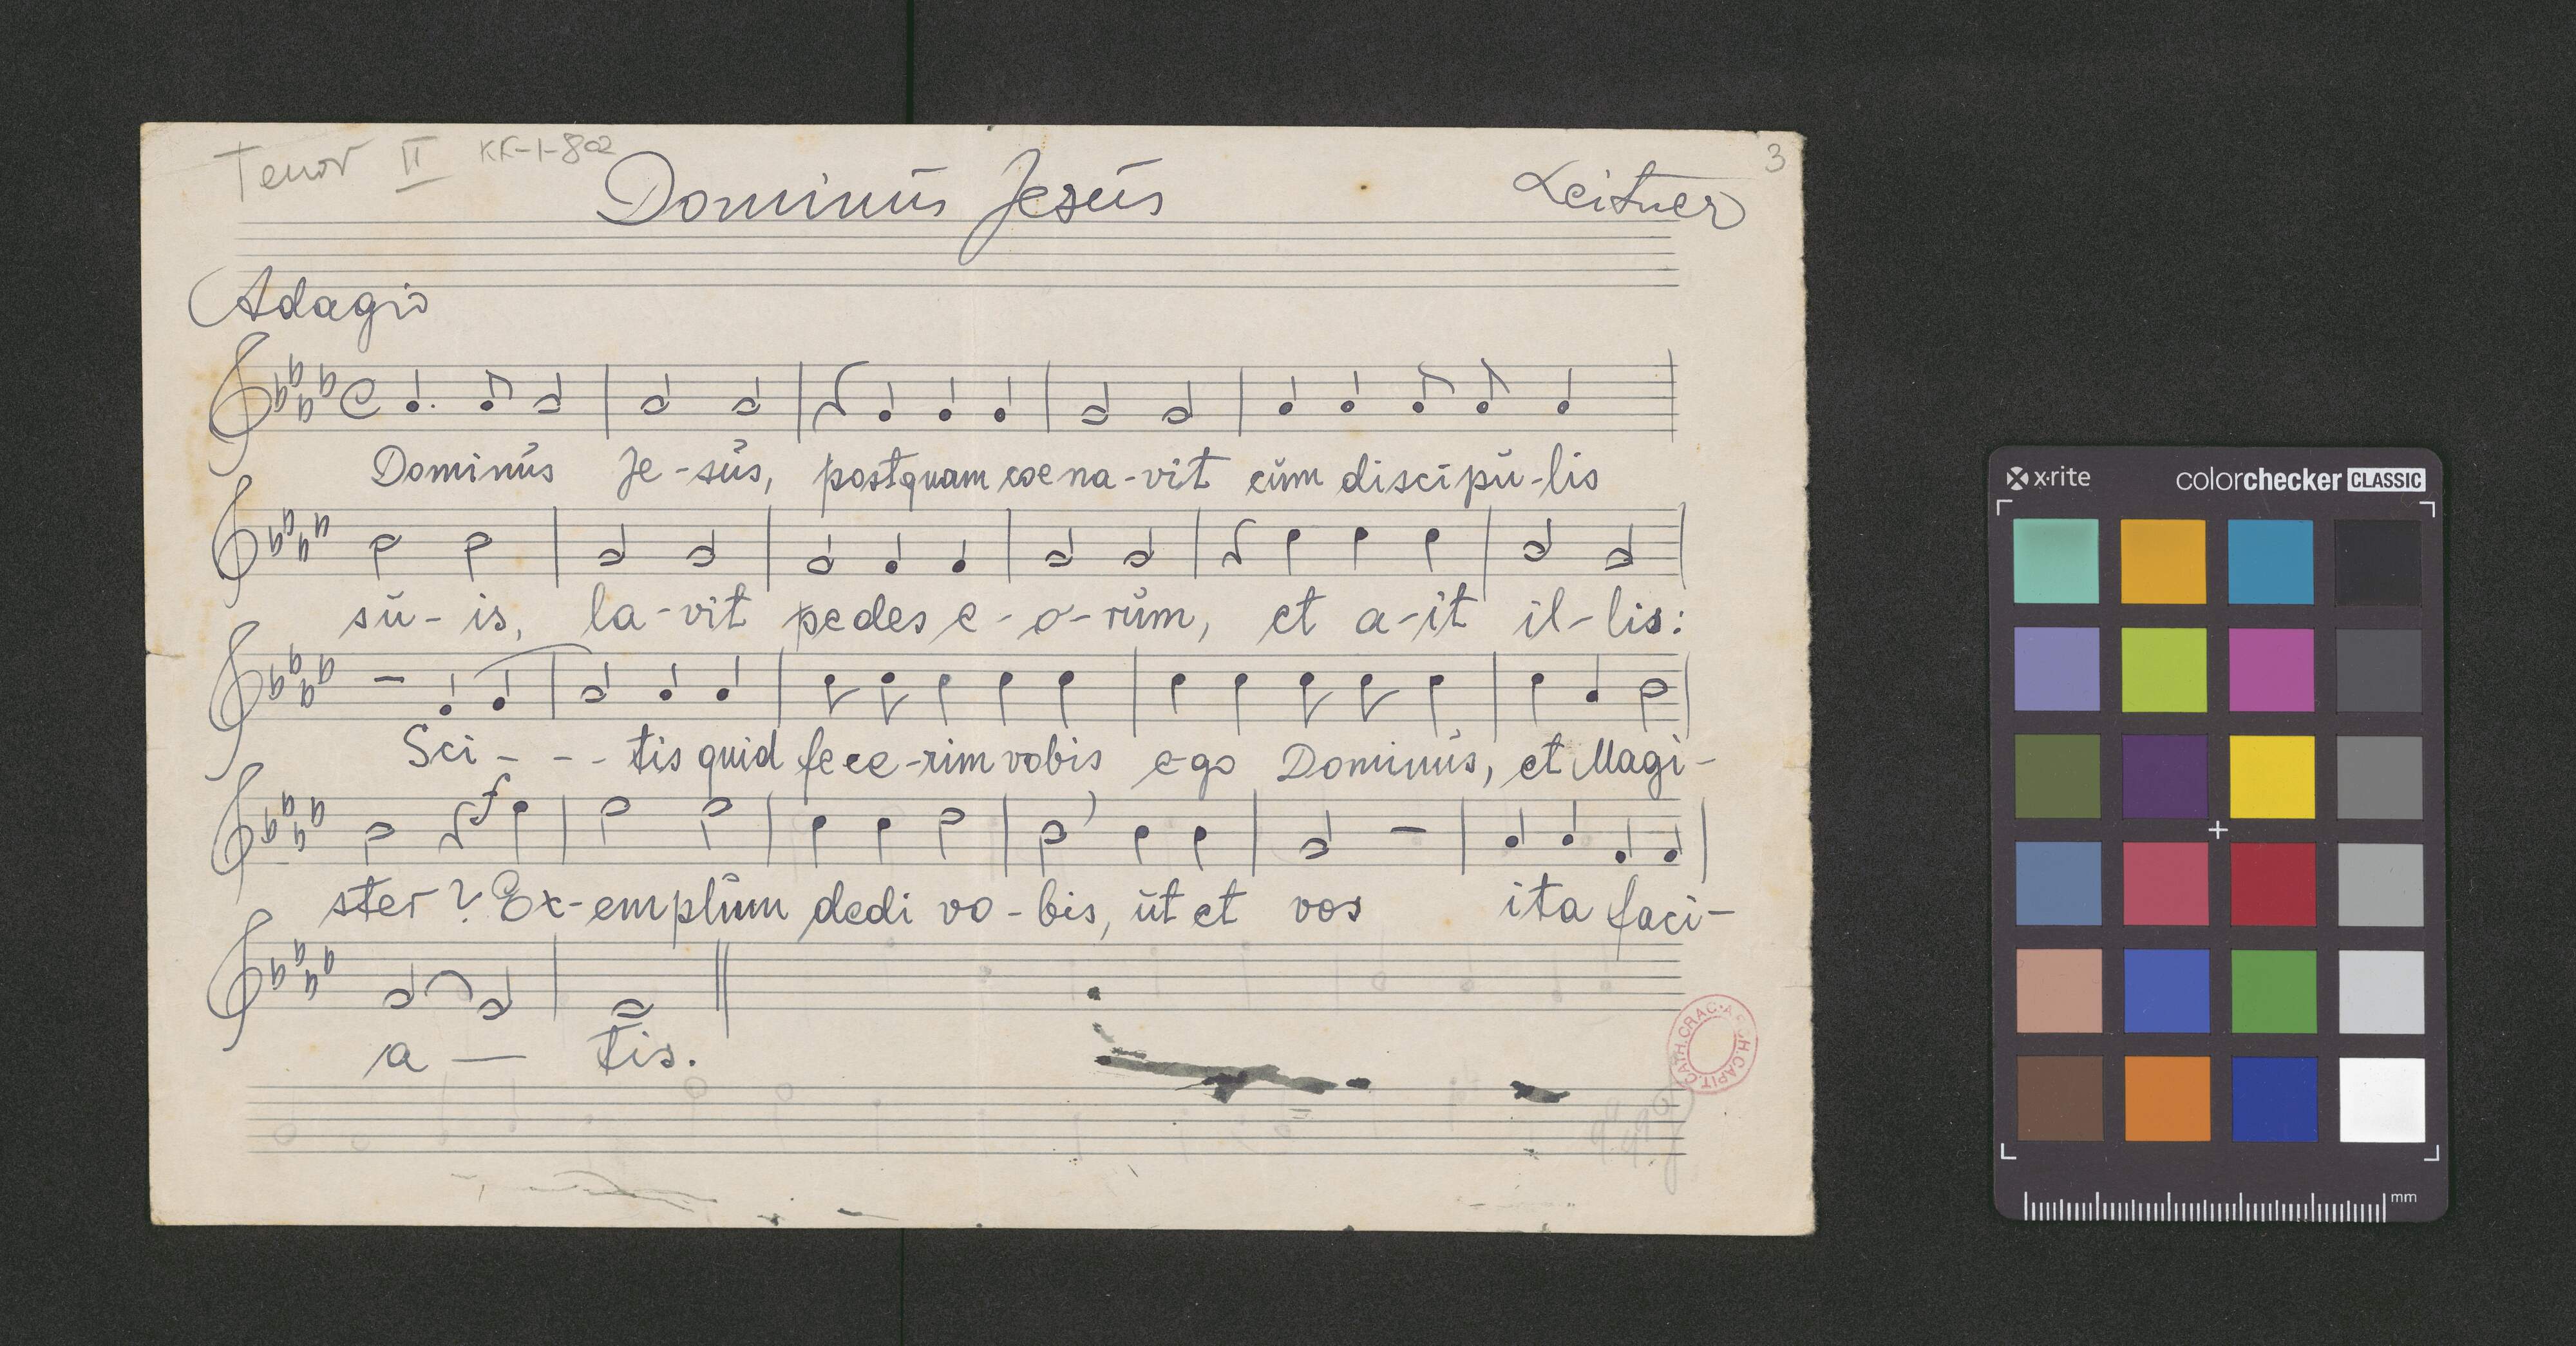 Tenor II KK-1-802
3
Dominus Jesus
Leitner
Adagio
Dominus Je-sus, postquam coena-vit cum discipu-lis
su-is, la-vit pedes e-o-rum, et a-it il-lis:
Sci- - - tis quid fece-rim vobis ego Dominus, et Magi-
f
ster? Ex-emplum dedi vo-bis, ut et vos ita faci-
a — tis.
ARCH.CAPIT.CATH.CRAC.
x·rite colorchecker CLASSIC
mm